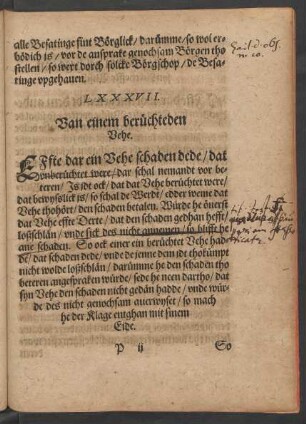 alle Besatinge sint Börglick / darümme / so wol er-
bödich is / vor de ansprake genochsam Börgen tho
stellen / so wert dorch solcke Börgschop / de Besa-
tinge vpgehauen.
LXXXVII.
Van einem berüchteden
Vehe.
EFfte dar ein Vehe schaden dede / dat
vnberüchtet were / dar schal nemandt vor be-
teren / Js idt ock / dat dat Vehe berüchtet were /
dat bewyslick is / so schal de Werdt / edder weme dat
Vehe thohört / den schaden betalen. Würde he öuerst
dat Vehe effte Derte / dat den schaden gedhan hefft /
loßschlân / vnde sick des nicht annemen / so blifft he
ane schaden. So ock einer ein berüchtet Vehe had-
de / dat schaden dede / vnde de jenne dem idt thokümpt
nicht wolde loßschlân / darümme he den schaden tho
beteren angespraken würde / sede he neen dartho / dat
syn Vehe den schaden nicht gedân hadde / vnde wür-
de des nicht genochsam auerwyset / so mach
he der Klage entghan mit sinem
Eide.
P ij
So